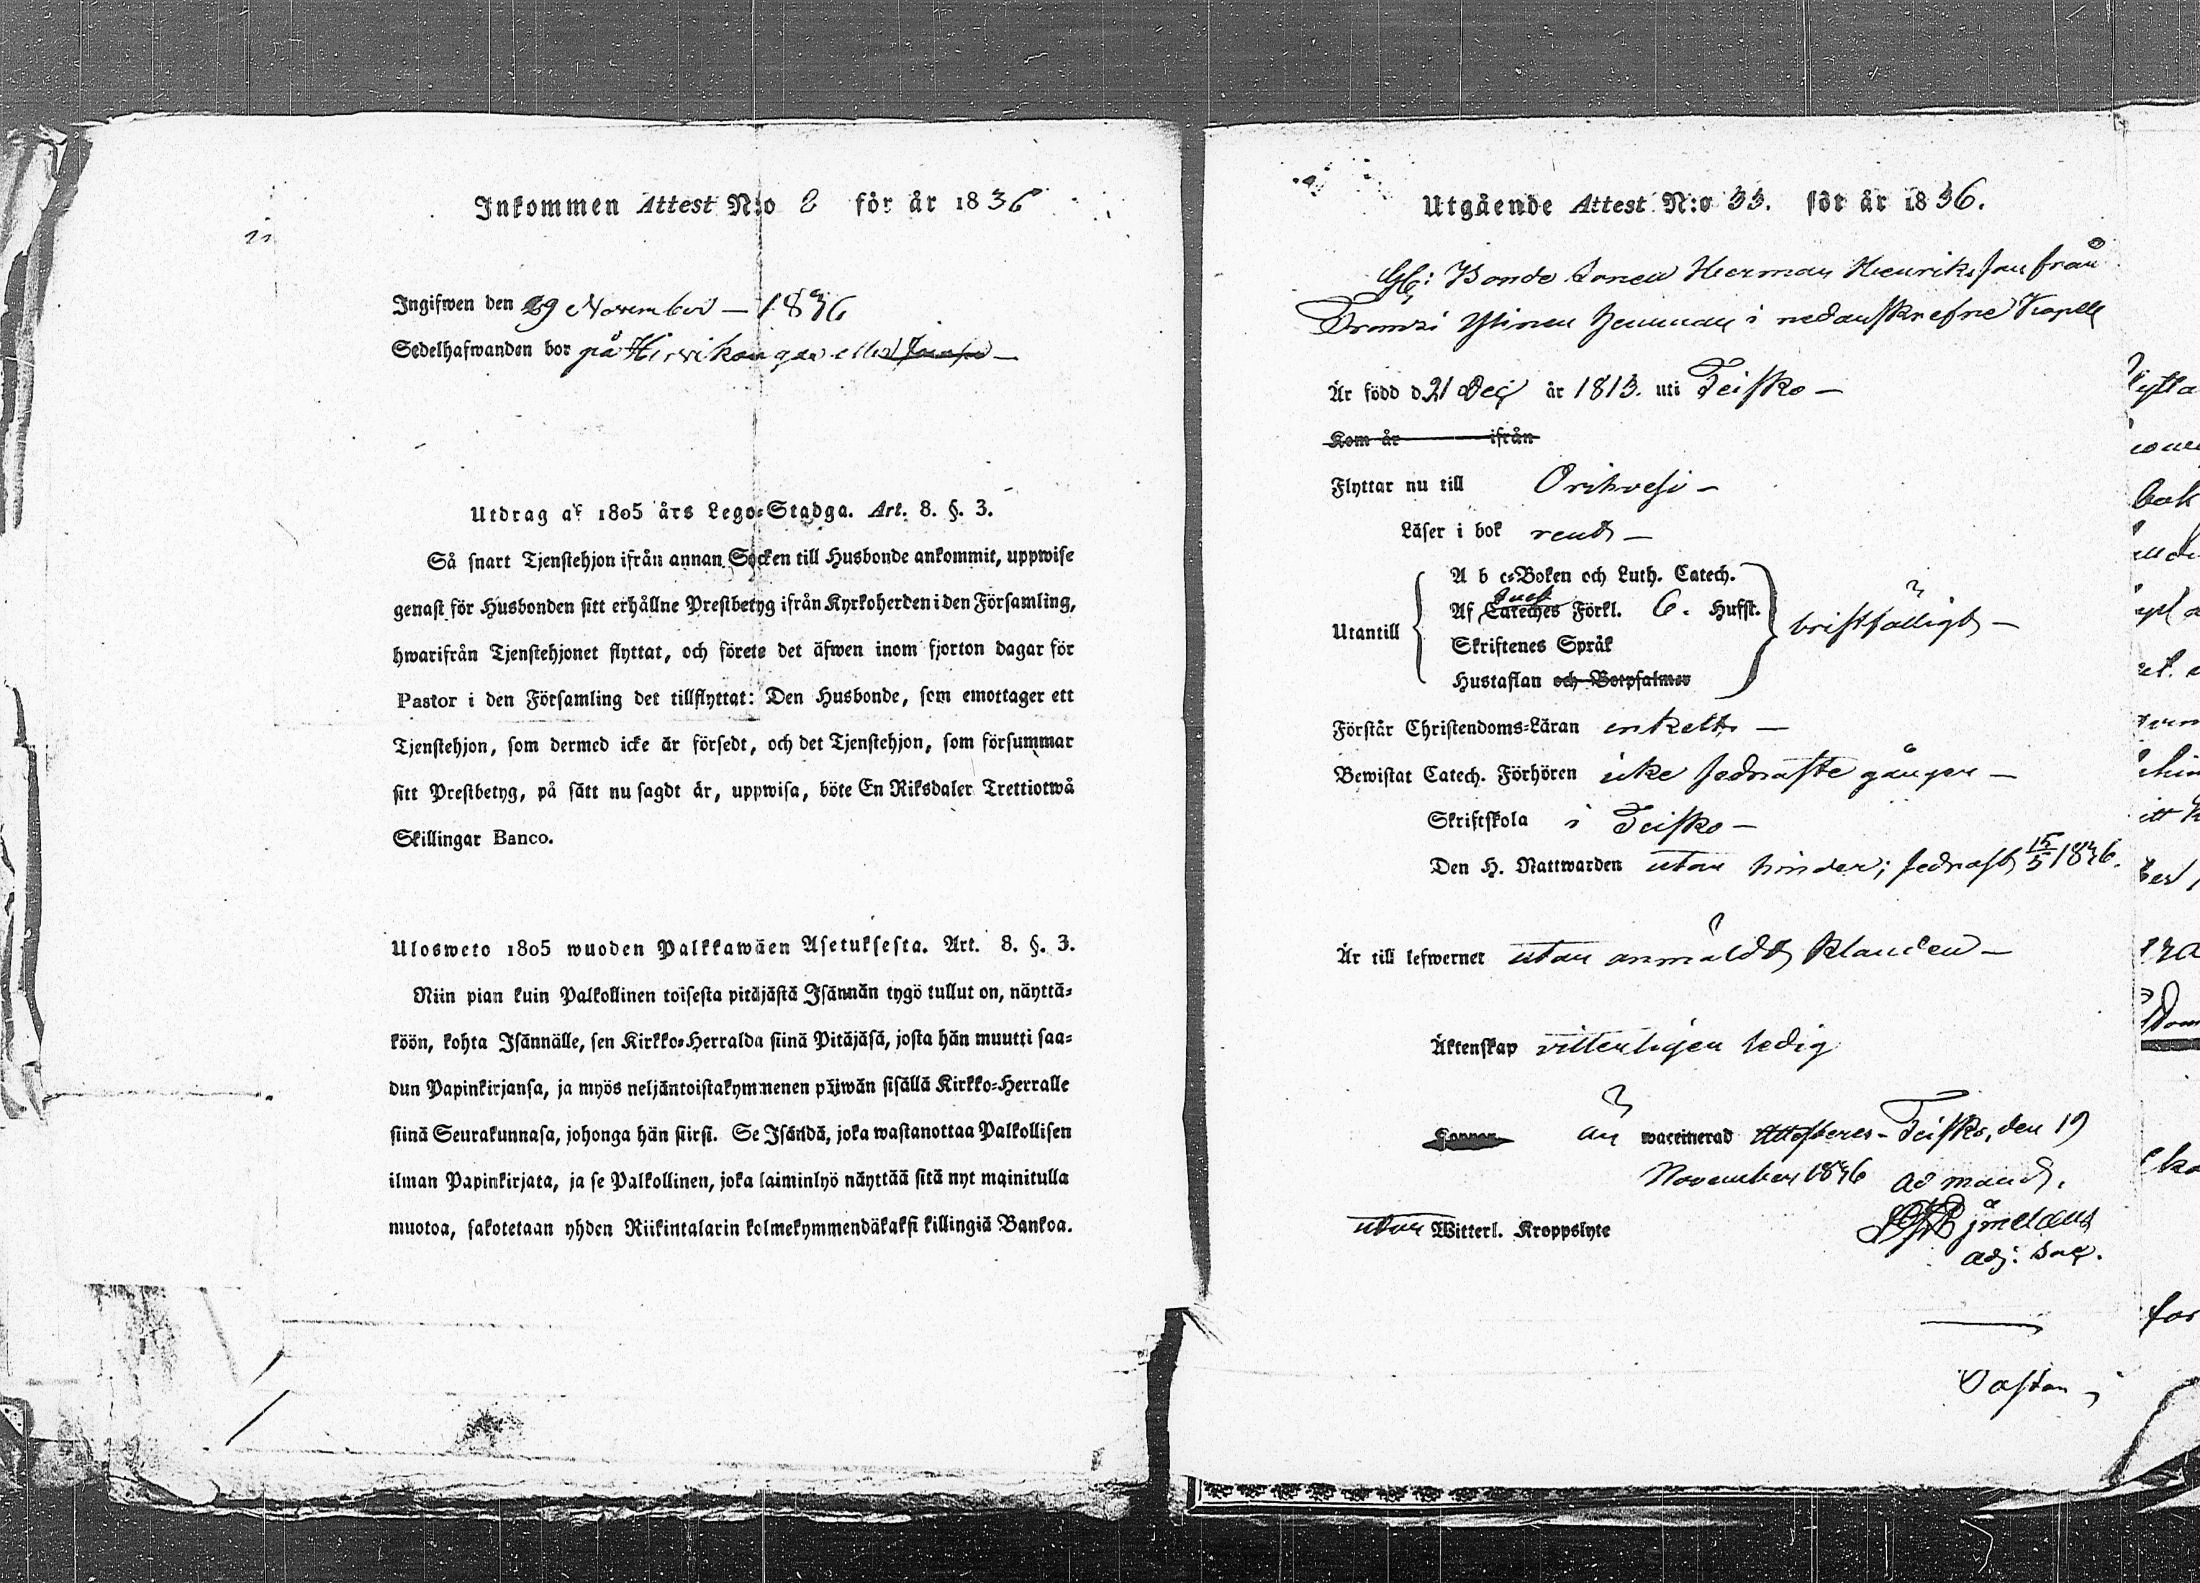 Inkommen Attest N:o 8 för år 1836
Ingifwen den 29 November — 1836
Sedelhafwanden bor på Hirvikangas eller
Utdrag af 1805 års Lego-Stadga. Art. 8. §. 3.
Så snart Tjenstehjon ifrån annan Socken till Husbonde ankommit, uppwise
genast för Husbonden sitt erhållne Prestbetyg ifrån Kyrkoherden i den Församling,
hwarifrån Tjenstehjonet flyttat, och förete det äfwen inom fjorton dagar för
Pastor i den Församling det tillflyttat: Den Husbonde, som emottager ett
Tjenstehjon, som dermed icke är försedt, och det Tjenstehjon, som försummar
sitt Prestbetyg, på sätt nu sagdt är, uppwisa, böte En Riksdaler Trettiotwå
Skillingar Banco.
Ulosweto 1805 wuoden Palkkawäen Asetuksesta. Art. 8. §. 3.
Niin pian kuin Palkollinen toisesta pitäjästä Isännän tygö tullut on, näyttä-
köön, kohta Isännälle, sen Kirkko-Herralda siinä Pitäjäsä, josta hän muutti saa-
dun Papinkirjansa, ja myös neljäntoistakymmenen päiwän sisällä Kirkko-Herralle
siinä Seurakunnasa, johonga hän siirsi. Se Isändä, joka wastanottaa Palkollisen
ilman Papinkirjata, ja se Palkollinen, joka laiminlyö näyttää sitä nyt mainitulla
muotoa, sakotetaan yhden Riikintalarin kolmekymmendäkaksi killingiä Bankoa.
Utgående Attest N:o 33. för år 1836.
Bonde Sonen Herman Henriksson från
Ylinen hemman i nedanskrefne Kapell
Är född d. 21 Dec är 1813. uti Teisko —
Kom år ifrån
Flyttar nu till Orihvesi —
Läser i bok rent —
Utantill
A b c-Boken och Luth. Catech.
Af Cateches Förkl. 6. Hufst.
Skriftenes Språk
Hustaflan och Botpsalmer
bristfälligt —
Förstår Christendoms-Läran enkelt —
Bewistat Catech. Förhören icke sednaste gången —
Skriftskola i Teisko —
Den H. Nattwarden utan hinder; sednast 15/5 1836.
Är till lefwernet utan anmäldt klander —
Äktenskap vitterligen ledig
än waccinerad Attesteres Teisko, den 19
November 1836 ad mand.
utan Witterl. Kroppslyte
Björnelaus
adj: Sac.
Pastor